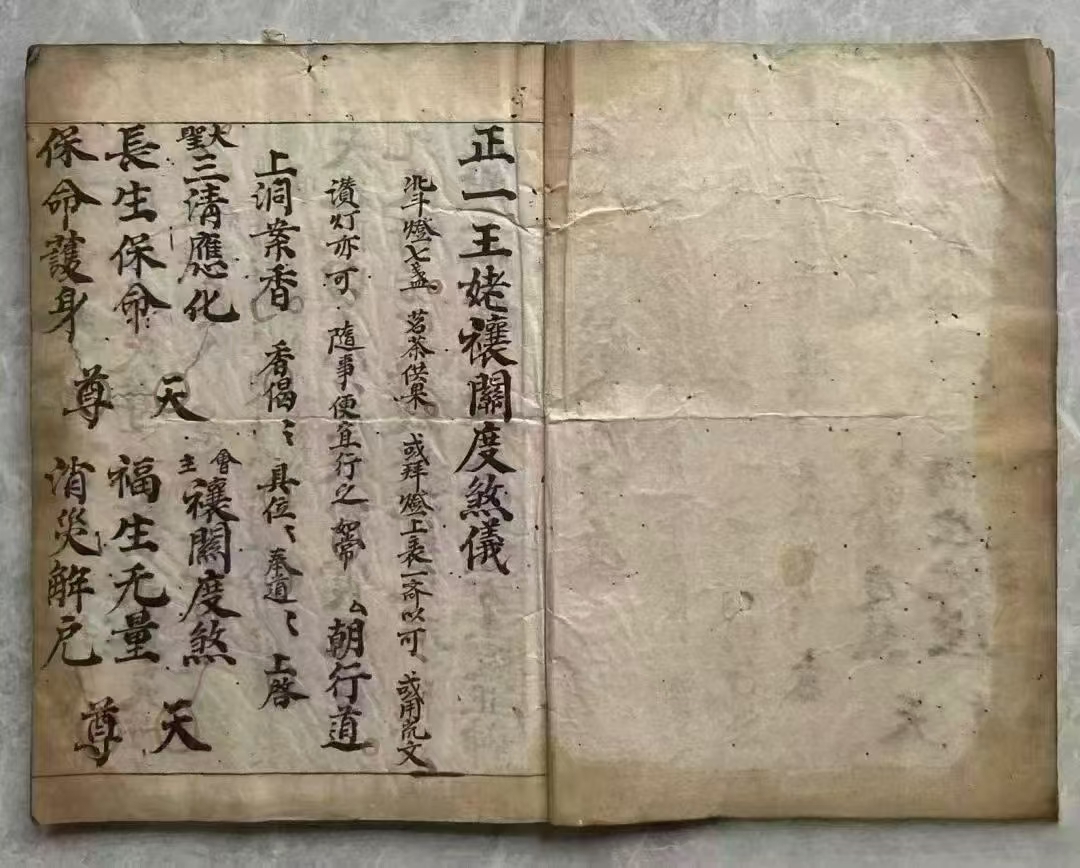 正一王姥禳關度煞儀
北斗燈七盞 茗茶供果 或拜燈上表一齐以可 或用疏文
讃灯亦可 隨事便宜行之 如常 厶朝行道
上洞案香 香偈 具位 奉道 上啓
大聖三清應化 會主禳關度煞 天
長生保命 天 福生无量 天
保命護身 尊 消災解厄 尊